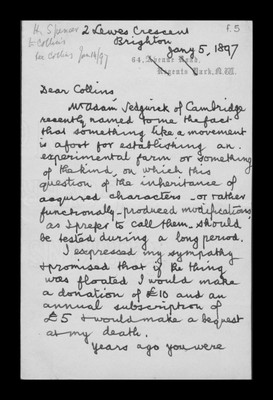 H. Spencer
to Collins
F. 5
2 Lewes Crescent
Brighton
Jany 5, 1897
64, Avenue Road,
Regents Park, N.W.
Dear Collins
Mr Adam Sedgwick of Cambridge
recently named to me the fact
that something like a movement
is afoot for establishing an
experimental farm or something
of the kind, on which this
question of the inheritance of
acquired characters – or rather
functionally-produced modifications
as I prefer to call them – should
be tested during a long period.
I expressed my sympathy
& promised that if the thing
was floated I would make
a donation of £10 and an
annual subscription of
£5 & would make a bequest
at my death.
Years ago you were